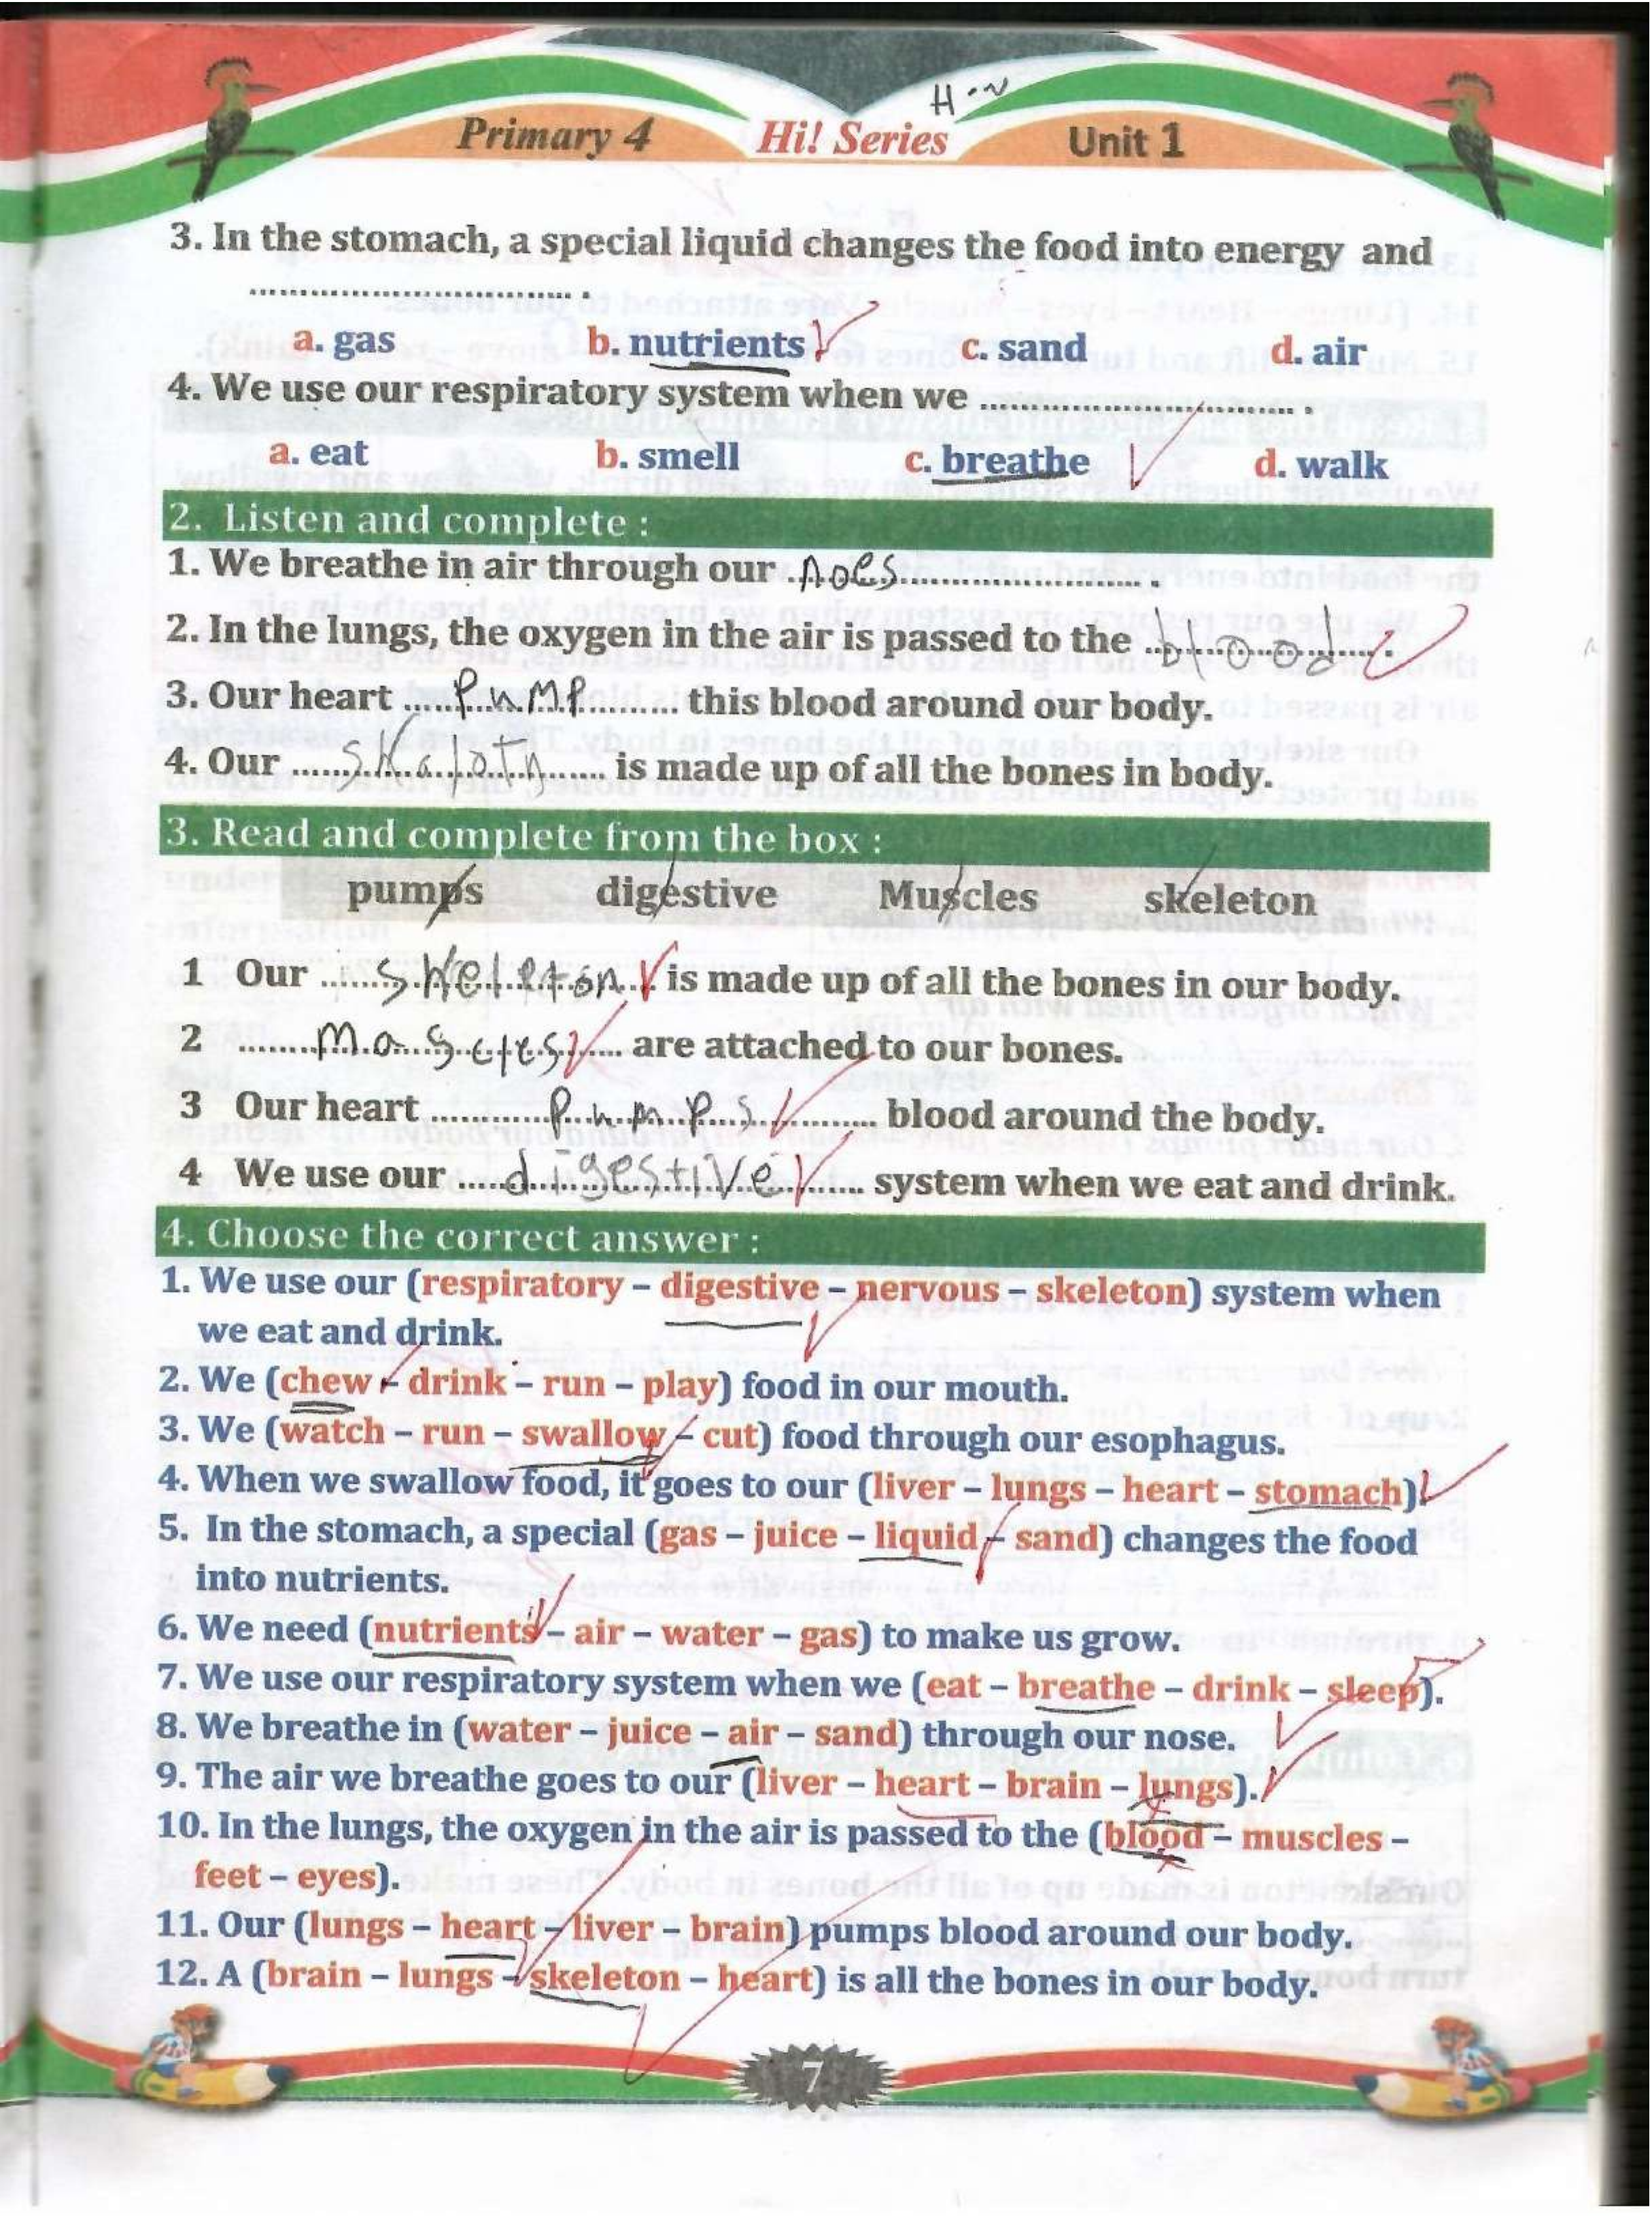 H.w
Primary 4 Hi! Series Unit 1
3. In the stomach, a special liquid changes the food into energy and
.................................. .
a. gas b. nutrients c. sand d. air
4. We use our respiratory system when we .................................. .
a. eat b. smell c. breathe d. walk
2. Listen and complete :
1. We breathe in air through our ..noes.......................... .
2. In the lungs, the oxygen in the air is passed to the ..blood...... .
3. Our heart ......pump.......... this blood around our body.
4. Our ......skalotn...... is made up of all the bones in body.
3. Read and complete from the box :
pumps digestive Muscles skeleton
1 Our ......skeleton... is made up of all the bones in our body.
2 ........mascles..... are attached to our bones.
3 Our heart ............pumps.......... blood around the body.
4 We use our .....digestive....... system when we eat and drink.
4. Choose the correct answer :
1. We use our (respiratory – digestive – nervous – skeleton) system when
we eat and drink.
2. We (chew – drink – run – play) food in our mouth.
3. We (watch – run – swallow – cut) food through our esophagus.
4. When we swallow food, it goes to our (liver – lungs – heart – stomach)
5. In the stomach, a special (gas – juice – liquid – sand) changes the food
into nutrients.
6. We need (nutrients – air – water – gas) to make us grow.
7. We use our respiratory system when we (eat – breathe – drink – sleep).
8. We breathe in (water – juice – air – sand) through our nose.
9. The air we breathe goes to our (liver – heart – brain – lungs).
10. In the lungs, the oxygen in the air is passed to the (blood – muscles –
feet – eyes).
11. Our (lungs – heart – liver – brain) pumps blood around our body.
12. A (brain – lungs – skeleton – heart) is all the bones in our body.
7